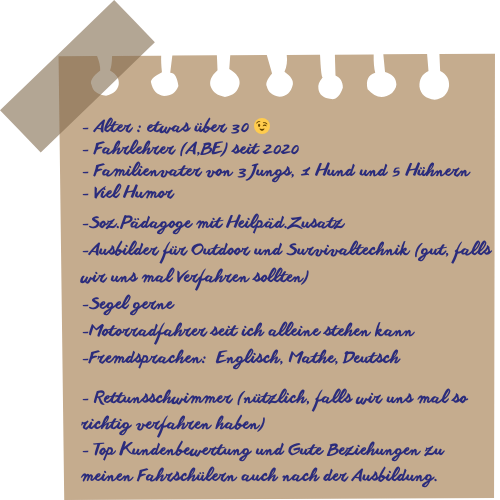 - Alter : etwas über 30 😉
- Fahrlehrer (A,BE) seit 2020
- Familienvater von 3 Jungs, 1 Hund und 5 Hühnern
- Viel Humor
-Soz.Pädagoge mit Heilpäd.Zusatz
-Ausbilder für Outdoor und Survivaltechnik (gut, falls
wir uns mal Verfahren sollten)
-Segel gerne
-Motorradfahrer seit ich alleine stehen kann
-Fremdsprachen: Englisch, Mathe, Deutsch
- Rettunsschwimmer (nützlich, falls wir uns mal so
richtig verfahren haben)
- Top Kundenbewertung und Gute Beziehungen zu
meinen Fahrschülern auch nach der Ausbildung.